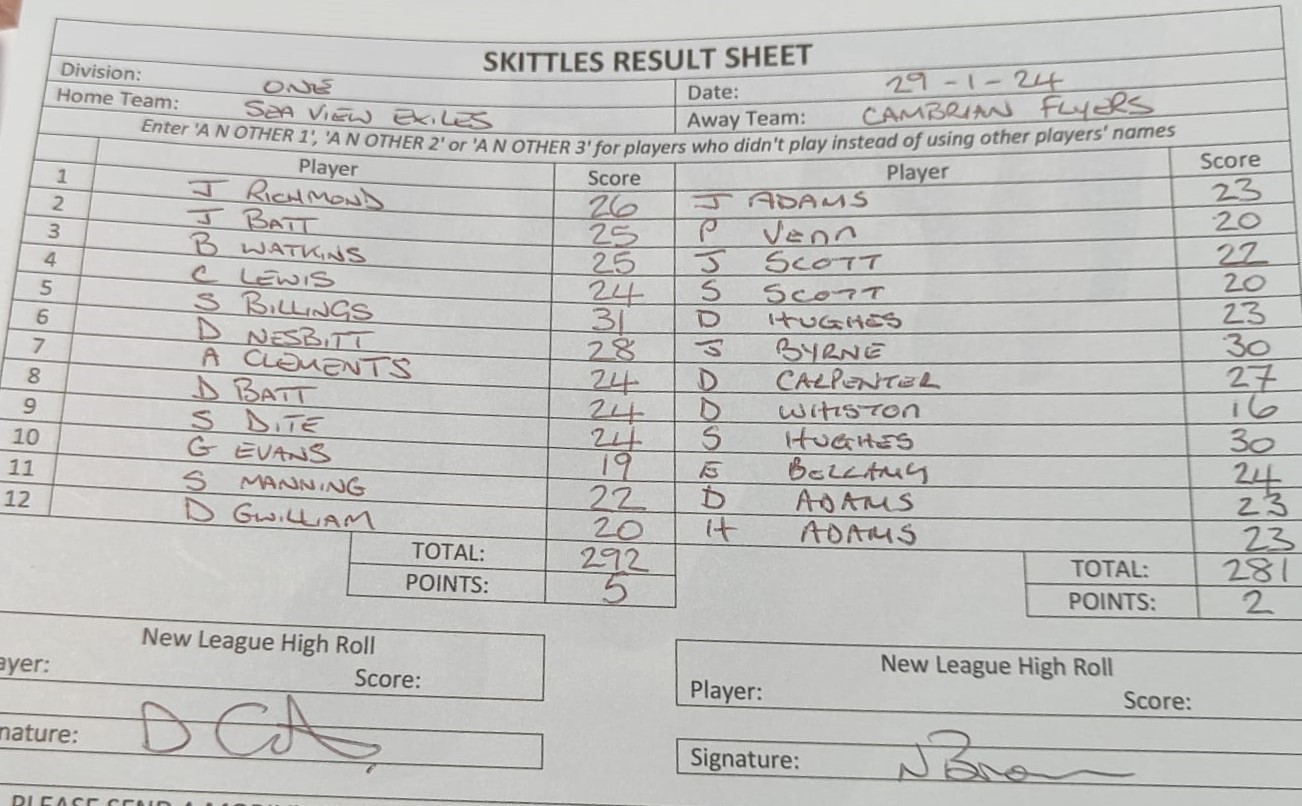 SKITTLES RESULT SHEET
Division: ONE Date: 29-1-24
Home Team: SEA VIEW EXILES Away Team: CAMBRIAN FLYERS
Enter 'A N OTHER 1', 'A N OTHER 2' or 'A N OTHER 3' for players who didn't play instead of using other players' names
Player Score Player Score
1 J RICHMOND 26 J ADAMS 23
2 J BATT 25 P Venn 20
3 B WATKINS 25 J SCOTT 22
4 C LEWIS 24 S SCOTT 20
5 S BILLINGS 31 D HUGHES 23
6 D NESBITT 28 J BYRNE 30
7 A CLEMENTS 24 D CARPENTER 27
8 D BATT 24 D WHISTON 16
9 S DITE 24 S HUGHES 30
10 G EVANS 19 E BELLAMY 24
11 S MANNING 22 D ADAMS 23
12 D GWILLIAM 20 H ADAMS 23
TOTAL: 292 TOTAL: 281
POINTS: 5 POINTS: 2
New League High Roll New League High Roll
ayer: Score: Player: Score:
nature: Signature:
PLEASE SEND A